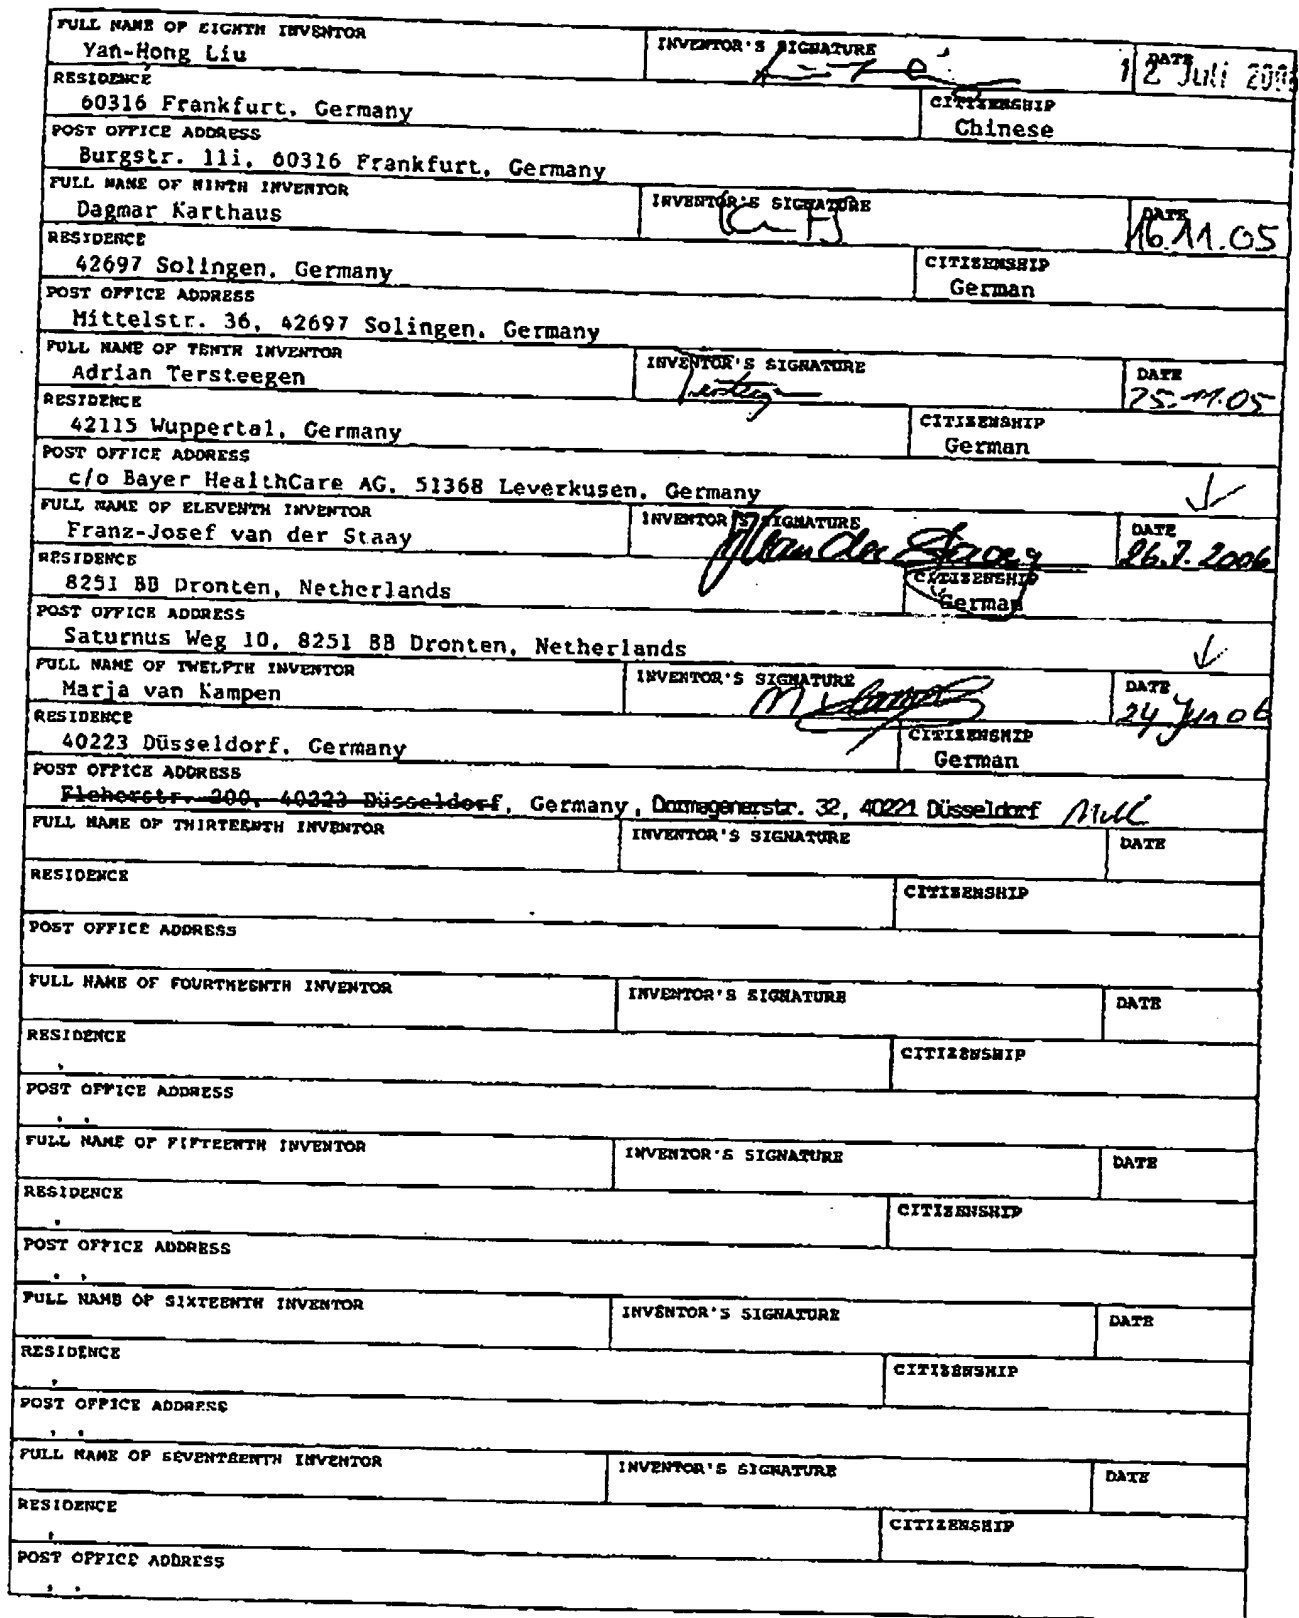 FULL NAME OF EIGHTH INVENTOR INVENTOR'S SIGNATURE DATE
Yan-Hong Liu 12 Juli
RESIDENCE CITIZENSHIP
60316 Frankfurt, Germany Chinese
POST OFFICE ADDRESS
Burgstr. 11i, 60316 Frankfurt, Germany
FULL NAME OF NINTH INVENTOR INVENTOR'S SIGNATURE DATE
Dagmar Karthaus 16.11.05
RESIDENCE CITIZENSHIP
42697 Solingen, Germany German
POST OFFICE ADDRESS
Mittelstr. 36, 42697 Solingen, Germany
FULL NAME OF TENTH INVENTOR INVENTOR'S SIGNATURE DATE
Adrian Tersteegen 25.11.05
RESIDENCE CITIZENSHIP
42115 Wuppertal, Germany German
POST OFFICE ADDRESS
c/o Bayer HealthCare AG, 51368 Leverkusen, Germany
FULL NAME OF ELEVENTH INVENTOR INVENTOR'S SIGNATURE DATE
Franz-Josef van der Staay van der Staay 26.7.2006
RESIDENCE CITIZENSHIP
8251 BB Dronten, Netherlands German
POST OFFICE ADDRESS
Saturnus Weg 10, 8251 BB Dronten, Netherlands
FULL NAME OF TWELFTH INVENTOR INVENTOR'S SIGNATURE DATE
Marja van Kampen 24 06
RESIDENCE CITIZENSHIP
40223 Düsseldorf, Germany German
POST OFFICE ADDRESS
Fleherstr. 200, 40223 Düsseldorf, Germany, Dormagenerstr. 32, 40221 Düsseldorf
FULL NAME OF THIRTEENTH INVENTOR INVENTOR'S SIGNATURE DATE
RESIDENCE CITIZENSHIP
POST OFFICE ADDRESS
FULL NAME OF FOURTHEENTH INVENTOR INVENTOR'S SIGNATURE DATE
RESIDENCE CITIZENSHIP
,
POST OFFICE ADDRESS
, ,
FULL NAME OF FIFTEENTH INVENTOR INVENTOR'S SIGNATURE DATE
RESIDENCE CITIZENSHIP
,
POST OFFICE ADDRESS
, ,
FULL NAME OF SIXTEENTH INVENTOR INVENTOR'S SIGNATURE DATE
RESIDENCE CITIZENSHIP
,
POST OFFICE ADDRESS
, ,
FULL NAME OF SEVENTEENTH INVENTOR INVENTOR'S SIGNATURE DATE
RESIDENCE CITIZENSHIP
,
POST OFFICE ADDRESS
, ,